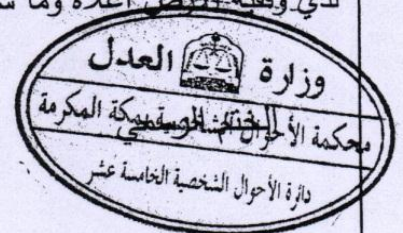 لدي
أعلاه وما
وزارة العدل
محكمة الأحوال الشخصية بمكة المكرمة
الختم الرسمي
دائرة الأحوال الشخصية الخامسة عشر